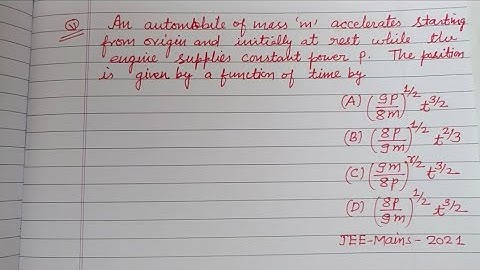 V) An automobile of mass 'm' accelerates starting
from origin and initially at rest while the
engine supplies constant power P. The position
is given by a function of time by
(A) (9P/8m)^1/2 t^3/2
(B) (8P/9m)^1/2 t^2/3
(C) (9m/8P)^1/2 t^3/2
(D) (8P/9m)^1/2 t^3/2
JEE-Mains-2021